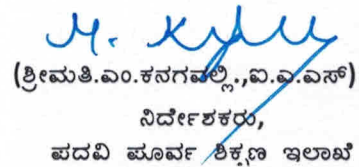 (ಶ್ರೀಮತಿ.ಎಂ.ಕನಗವಲ್ಲಿ.,ಐ.ಎ.ಎಸ್)
ನಿರ್ದೇಶಕರು,
ಪದವಿ ಪೂರ್ವ ಶಿಕ್ಷಣ ಇಲಾಖೆ